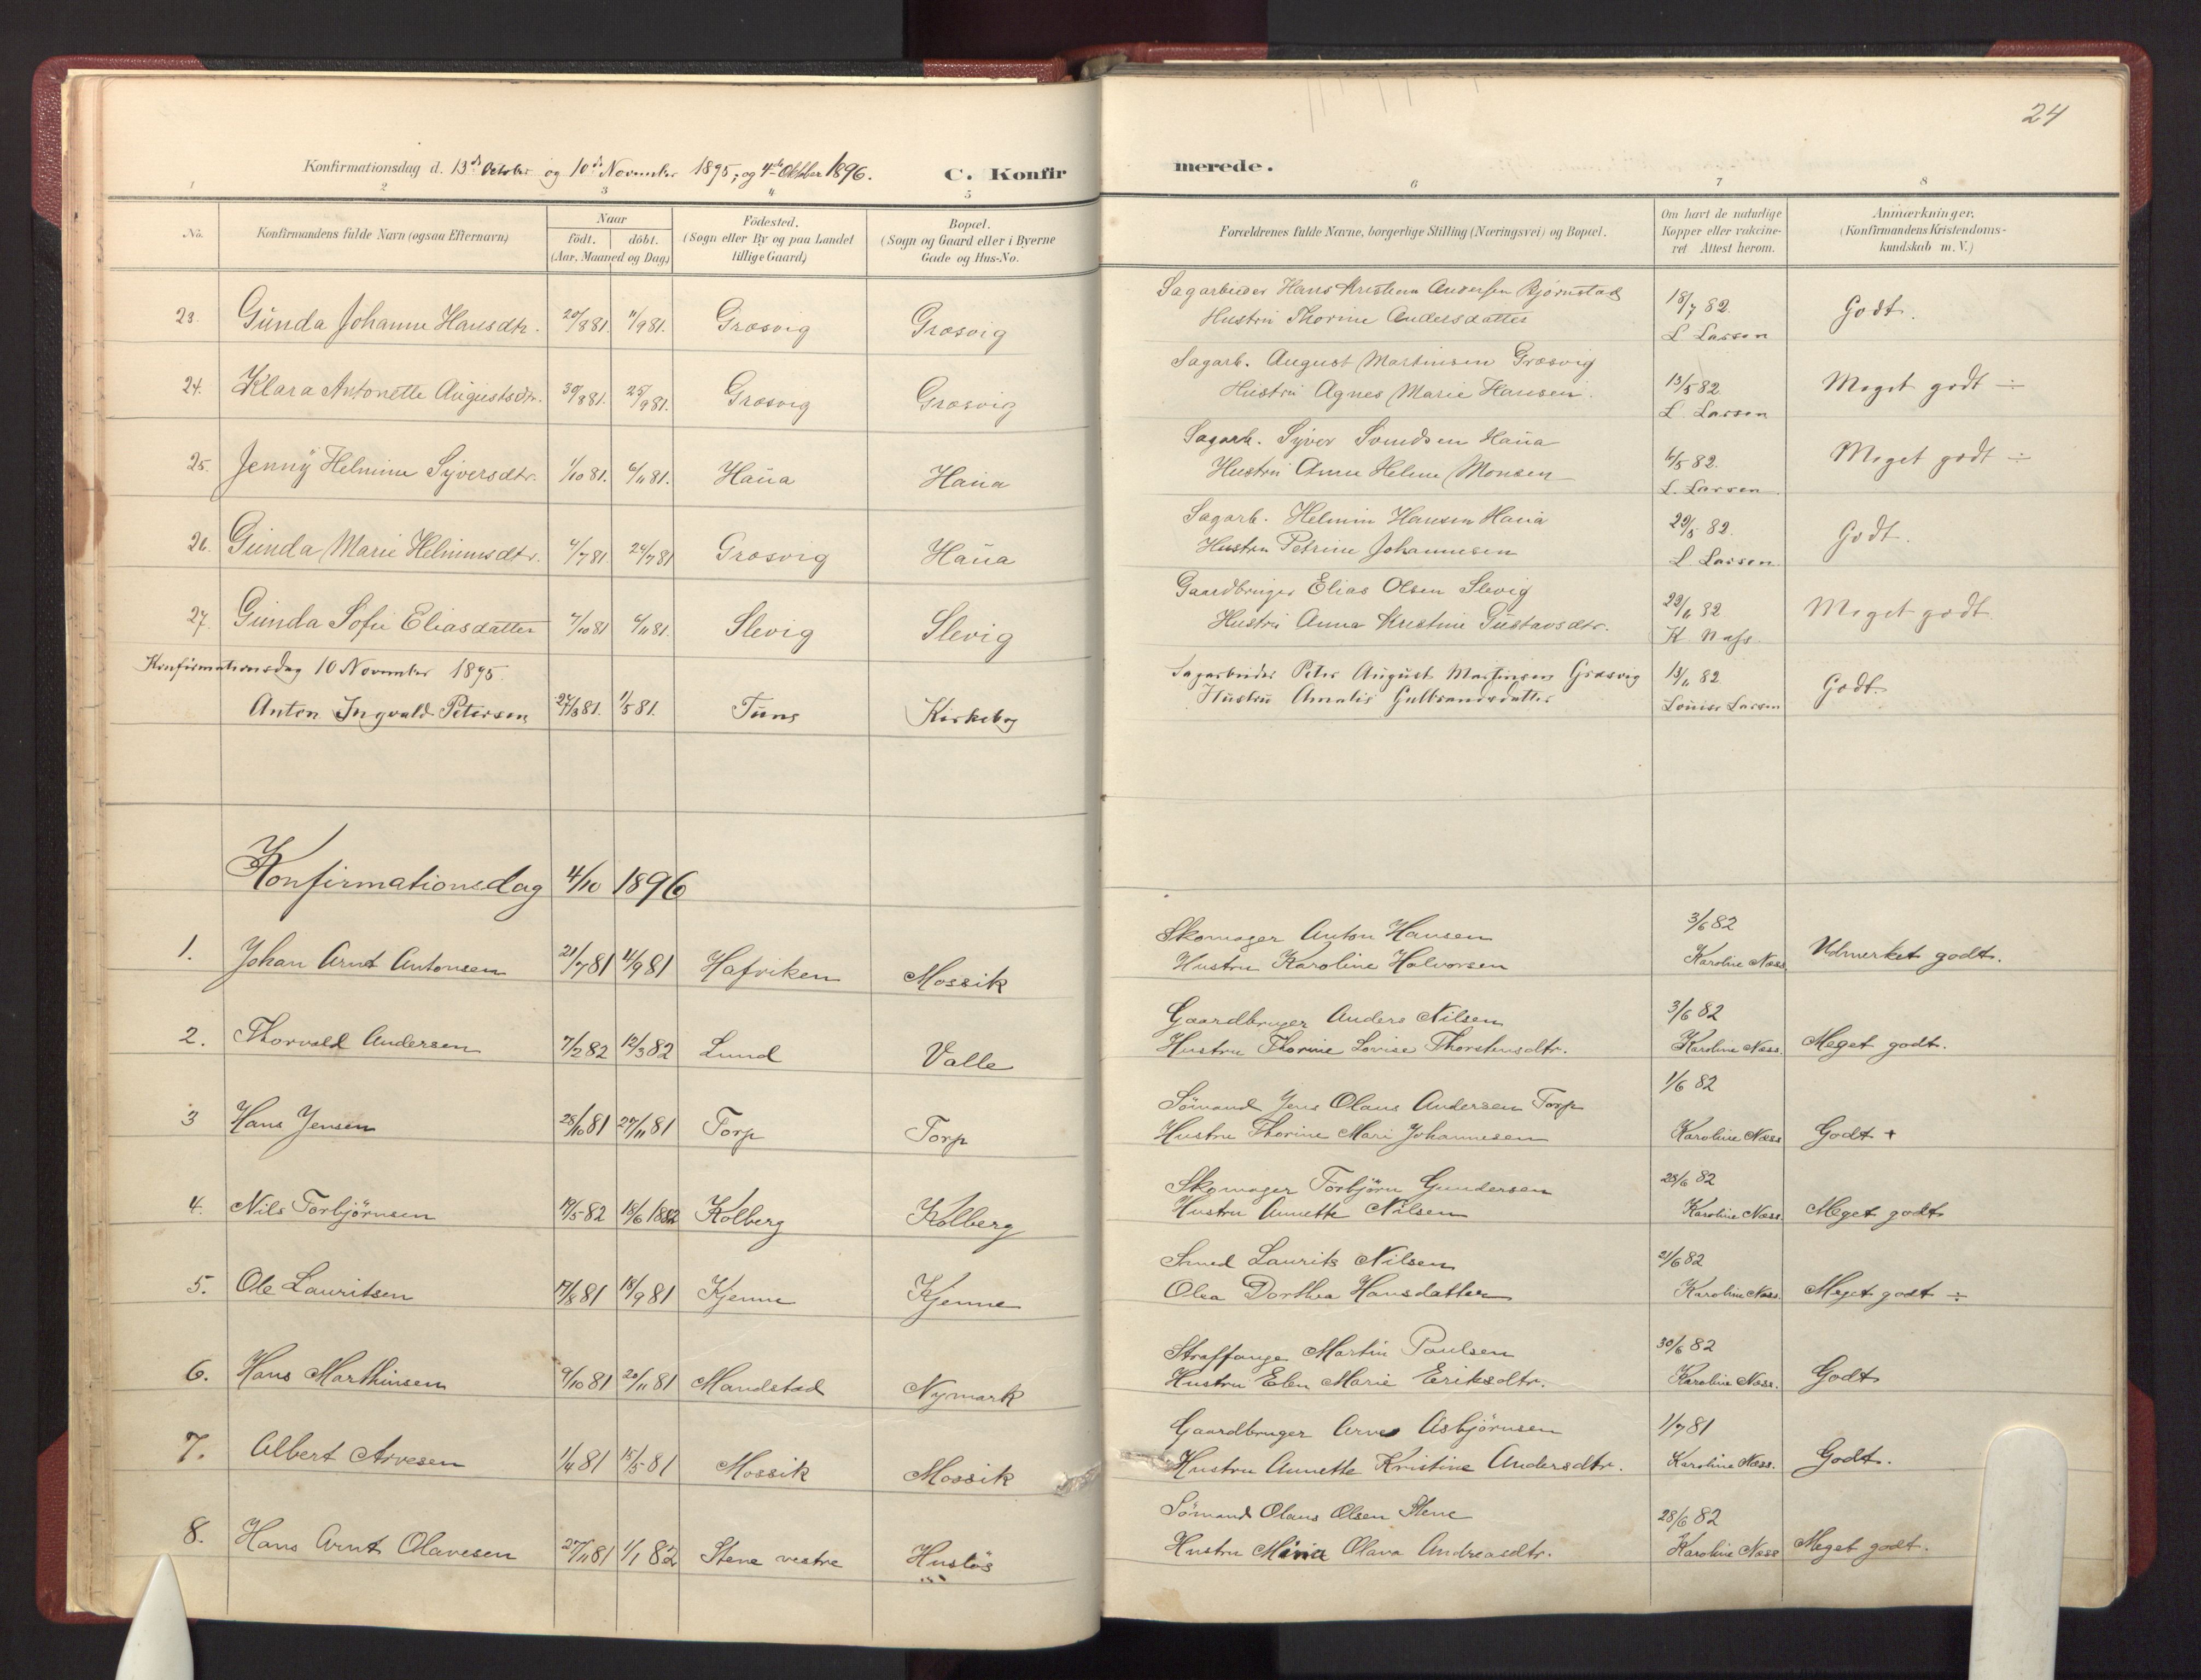 24
Konfirmationsdag d. 13de October og 10de November 1895, og 4de Oktober 1896. C. Konfirmerede.
1 2 3 4 5 6 7 8
No. Konfirmandens fulde Navn (ogsaa Efternavn) Naar födt. döbt. (Aar, Maaned og Dag) Födested. (Sogn eller By og paa Landet tillige Gaard) Bopæl. (Sogn og Gaard eller i Byerne Gade og Hus-No. Forældrenes fulde Navne, borgerlige Stilling (Næringsvei) og Bopæl. Om havt de naturlige Kopper eller vakcineret Attest herom. Anmærkninger. (Konfirmandens Kristendomskundskab m. V.)
23. Gunda Johanne Hansdtr. 20/8 81. 11/9 81. Græsvig Græsvig Sagarbeider Hans Kristian Andersen Bjørnstad 18/7 82. Godt.
Hustru Thorine Andersdatter L Larsen
24. Klara Antonette Augustsdtr. 30/8 81. 25/9 81. Græsvig Græsvig Sagarb. August Martinsen Græsvig 13/5 82. Meget godt ÷
Hustru Agnes Marie Hansen. L. Larsen
25. Jenny Helmine Syversdtr. 1/10 81. 6/11 81. Haua Haua Sagarb. Syver Svendsen Haua 6/5 82. Meget godt ÷
Hustru Anne Helene Monsen L. Larsen.
26. Gunda Marie Helminsdtr. 4/7 81. 24/7 81 Græsvig Haua Sagarb. Helmin Hansen Haua 29/5 82. Godt.
Hustru Petrine Johannesen L Larsen.
27. Gunda Sofie Eliasdatter 7/10 81 6/11 81. Slevig Slevig Gaardbruger Elias Olsen Slevig 22/6 82 Meget godt
Hustru Anna Kristine Gustavsdtr. K Næss.
Konfirmationsdag 10 November 1895.
Anton Ingvald Petersen 27/3 81. 1/5 81. Tune Kirkeby Sagarbeider Peter August Martinsen Græsvig 13/6 82. Godt.
Hustru Amalie Gulbrandsdatter Louise Larsen
Konfirmationsdag 4/10 1896
1. Johan Arnt Antonsen 21/7 81 11/9 81 Hafviken Mossik Skomager Anton Hansen 3/6 82 Udmerket godt.
Hustru Karoline Halvorsen Karoline Næss
2. Thorvald Andersen 7/2 82 12/3 82 Lund Valle Gaardbruger Anders Nilsen 3/6 82 Meget godt.
Hustru Thorine Lovise Thorstensdtr. Karoline Næss.
3 Hans Jensen 28/10 81 27/11 81 Torp Torp Sömand Jens Olaus Andersen Torp 1/6 82 Godt +
Hustru Thorine Mari Johannesen Karoline Næss
4. Nils Torbjörnsen 17/5 82 18/6 1882 Kolberg Kolberg Skomager Torbjörn Gundersen 28/6 82 Meget godt
Hustru Annette Nilsen Karoline Næss.
5. Ole Lauritsen 17/8 81 18/9 81 Kjenne Kjenne Smed Laurits Nilsen 21/6 82 Meget godt ÷
Olea Dorthea Hansdatter Karoline Næss.
6. Hans Marthinsen 9/10 81 20/11 81 Mandstad Nymark Straffange Martin Paulsen 30/6 82 Godt
Hustru Elen Marie Eriksdtr. Karoline Næss.
7. Albert Arvesen 1/4 81 15/5 81 Mossik Mossik Gaardbruger Arve Asbjörnsen 1/7 81 Godt.
Hustru Annette Kristine Andersdtr. Karoline Næss.
8. Hans Arnt Olavesen 27/11 81 1/1 82 Stene vestre Huslös Sömand Olaus Olsen Stene 28/6 82 Meget godt.
Hustru Mina Olava Andreasdtr. Karoline Næss